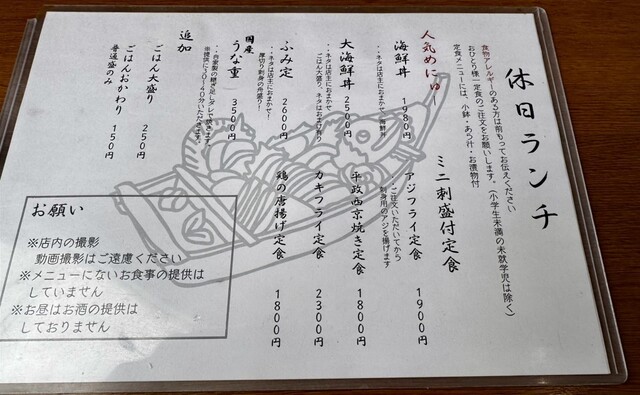 休日ランチ
食物アレルギーのある方は前もってお伝えください
おひとり様一定食のご注文をお願いします。(小学生未満の未就学児は除く)
定食メニューには、小鉢・あら汁・お漬物付
人気めにゅー
海鮮丼 1980円
・・ネタは店主におまかせ 海鮮丼
大海鮮丼 2500円
・・ネタは店主におまかせ!
ごはん大盛り、ネタはおまけ有り
ふみ定 2600円
・・ネタは店主におまかせ!
厚切り刺身の舟盛り!
国産
うな重 3500円
・・自家製の継ぎ足しダレで焼きます。
※提供に30-40分いただきます。
追加
ごはん大盛り 250円
ごはんおかわり 150円
普通盛のみ
ミニ刺盛付定食
アジフライ定食 1900円
・・ご注文いただいてから
刺身用のアジを揚げます
平政西京焼き定食 1800円
カキフライ定食 2300円
鶏の唐揚げ定食 1800円
お願い
※店内の撮影
動画撮影はご遠慮ください
※メニューにないお食事の提供は
していません
※お昼はお酒の提供は
しておりません